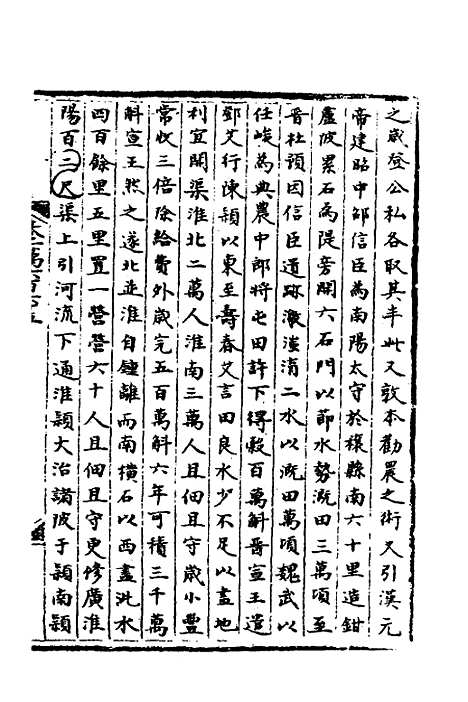 之歲登公私各取其半此又敦本勸農之術又引漢元
帝建昭中邵信臣為南陽太守於穰縣南六十里造鉗
盧陂累石為隄旁開六石門以節水勢溉田三萬頃至
晉杜預因信臣遺跡激滍淯二水以溉田萬頃魏武以
任峻為典農中郎將屯田許下得穀百萬斛晉宣王遣
鄧艾行陳穎以東至壽春艾言田良水少不足以盡地
利宜開渠淮北二萬人淮南三萬人且佃且守歲小豐
常收三倍除給費外歲完五百萬斛六年可積三千萬
斛宣王然之遂北並淮自鍾離而南橫石以西盡沘水
四百餘里五里置一營營六十人且佃且守更修廣淮
陽百二尺渠上引河流下通淮穎大治諸陂于穎南穎